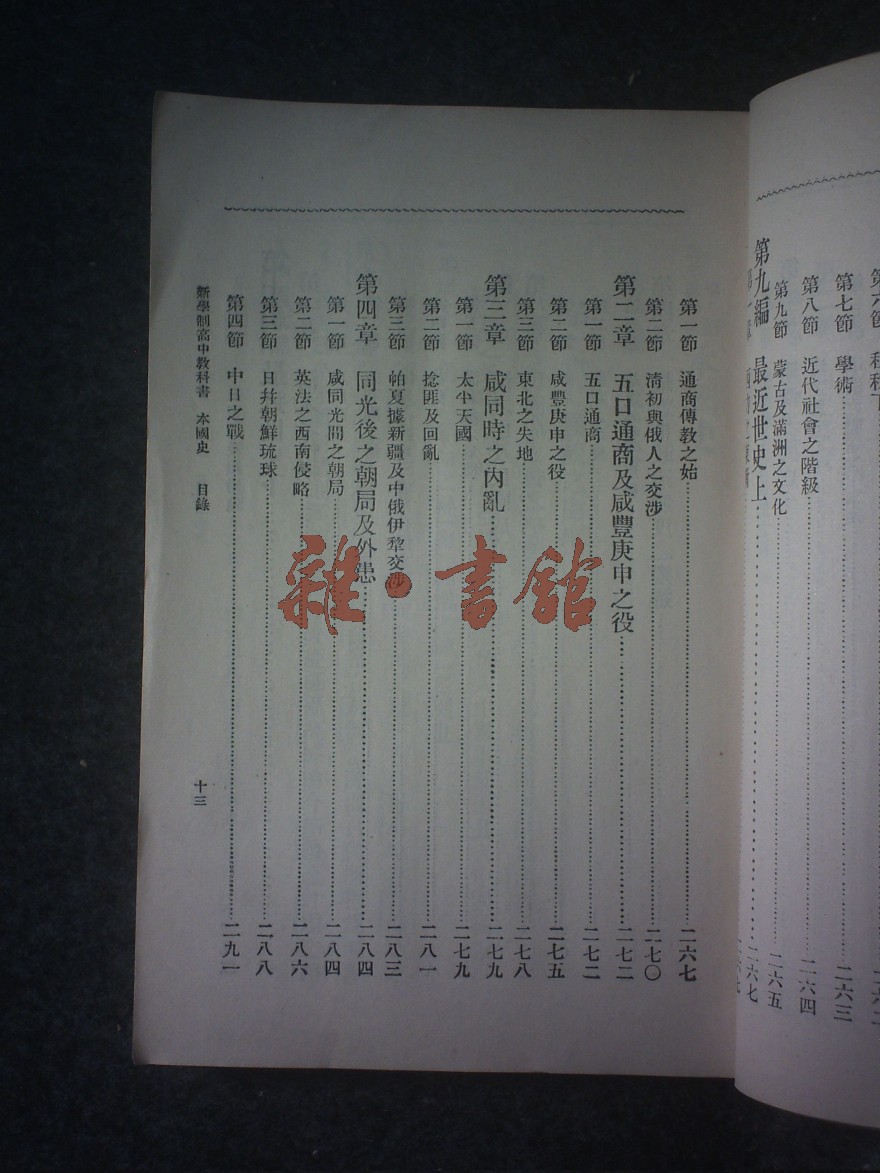 第七節 學術 二六三
第八節 近代社會之階級 二六四
第九節 蒙古及滿洲之文化 二六五
第九編 最近世史上 二六七
第一節 通商傳教之始 二六七
第二節 清初與俄人之交涉 二七〇
第二章 五口通商及咸豐庚申之役 二七二
第一節 五口通商 二七二
第二節 咸豐庚申之役 二七五
第三節 東北之失地 二七八
第三章 咸同時之內亂 二七九
第一節 太平天國 二七九
第二節 捻匪及回亂 二八一
第三節 帕夏據新疆及中俄伊犂交涉 二八三
第四章 同光後之朝局及外患 二八四
第一節 咸同光間之朝局 二八四
第二節 英法之西南侵略 二八六
第三節 日幷朝鮮琉球 二八八
第四節 中日之戰 二九一
新學制高中教科書 本國史 目錄 十三
雜·書館